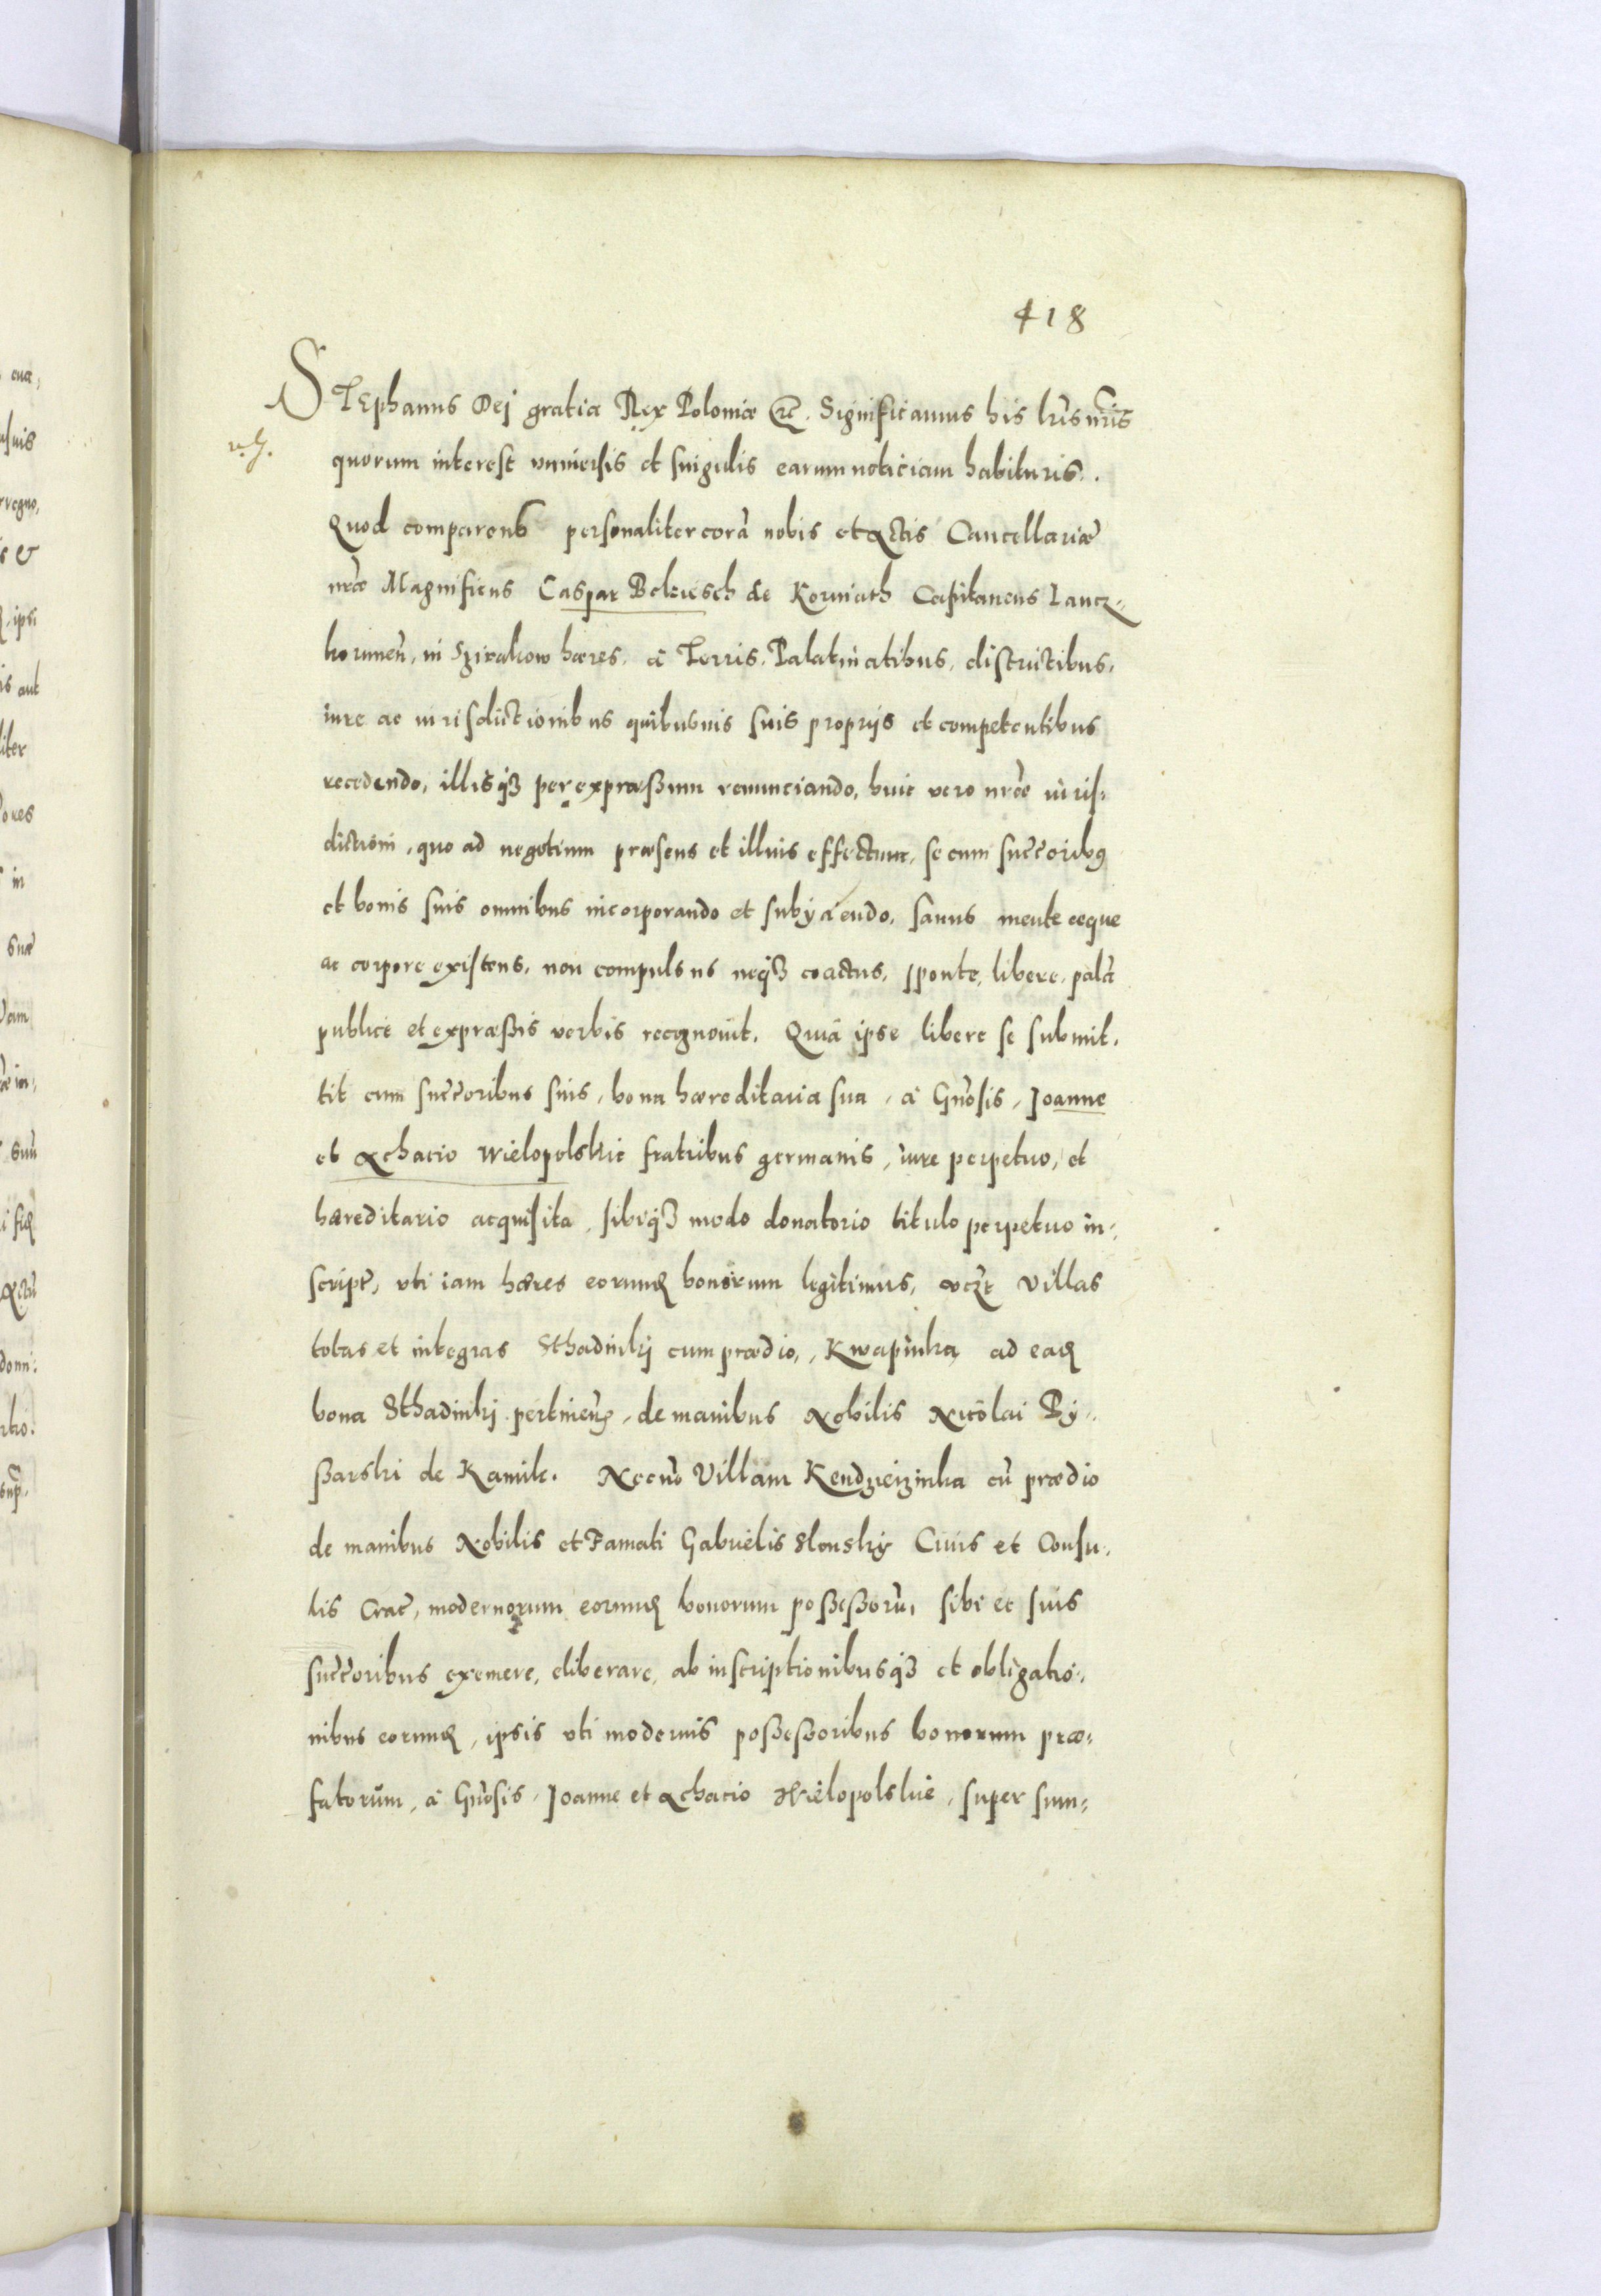 418
STEphanus Dej gratia Rex Poloniæ etc̃. Significamus his lr̃is nr̃is
quorum interest vniuersis et singulis earum noticiam habituris.
Quod comparens personaliter corã nobis et Actis Cancellariæ
nr̃æ Magnificus Caspar Bekiesch de Korniath Capitaneus Lancz-
korunen̄, in Szirakow hæres, à Terris, Palatinatibus, districtibus,
iure ac iurisdictionibus quibusuis suis proprijs et competentibus
recedendo, illisqꝫ per expraeßum renunciando, huic vero nr̃æ iuris-
dictioni, quo ad negotium præsens et illius effectum, se cum succ̃oribꝰ
et bonis suis omnibus incorporando et subijciendo, sanus mente æque
ac corpore existens, non compulsus neqꝫ coactus, sponte, libere, palã
publice et expræßis verbis recognouit. Quiã ipse libere se submit-
tit cum succ̃oribus suis, bona hæreditaria sua, à Gñosis, Joanne
et Achacio Wielopolskie fratribus germanis, iure perpetuo, et
hæreditario acquisita, sibiqꝫ modo donatorio titulo perpetuo in-
script̃, vti iam hæres eorundꝫ bonorum legitimus, vcꝫt̃ Villas
totas et integras Sthadnikj cum prædio, Kwapinka ad eadꝫ
bona Sthadnikj pertinen̄, de manibus Nobilis Nicolai Py-
ßarski de Kamik. Necnõ Villam Kendzieizinka cũ prædio
de manibus Nobilis et Famati Gabrielis Slonsky Ciuis et Consu-
lis Crac̃, modernorum eorundꝫ bonorum poßeßorũ, sibi et suis
succ̃oribus exemere, eliberare, ab inscriptionibusqꝫ et obligatio-
nibus eorundꝫ, ipsis vti modernis poßeßoribus bonorum præ-
fatorum, à Gñosis, Joanne et Achacio Wielopolskie, super sum-